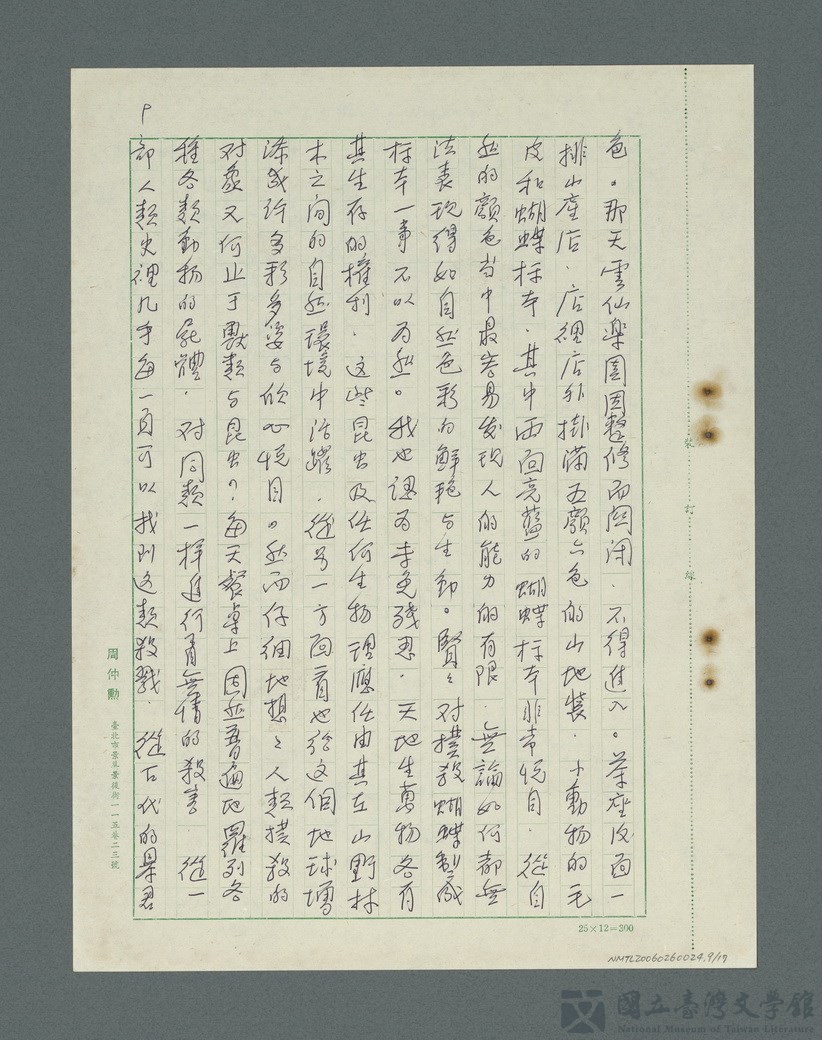 色。那天雲仙樂園因整修而関閉．不得進入。茶座後面一
排山產店．店裡店外掛滿五顏六色的山地裝．小動物的毛
皮和蝴蝶标本．其中两面亮藍的蝴蝶标本非常悦目．從自
然的顏色当中最容易发現人的能力的有限．無論如何都無
法表現得如自然色彩的鮮艳与生動。賢々对撲殺蝴蝶製成
标本一事不以为然。我也認为未免残忍．天地生萬物各有
其生存的權利．这些昆虫及任何生物理應任由其在山野林
木之间的自然環境中活躍．從另一方面看也给这個地球增
添或许多彩多姿与欣心悦目。然而仔细地想々人類撲殺的
对象又何止于獸類与昆虫？每天餐桌上固然普遍地羅列各
種各類動物的屍體．对同類一样進行着無情的殺害．從一
部人類史裡几乎每一頁可以找到这類殺戮．從古代的暴君
P
装訂線
周仲勳
臺北市景美景後街一一五巷二三號
25×12=300
NMTL20060260024.9/17
國立臺灣文學館
National Museum of Taiwan Literature